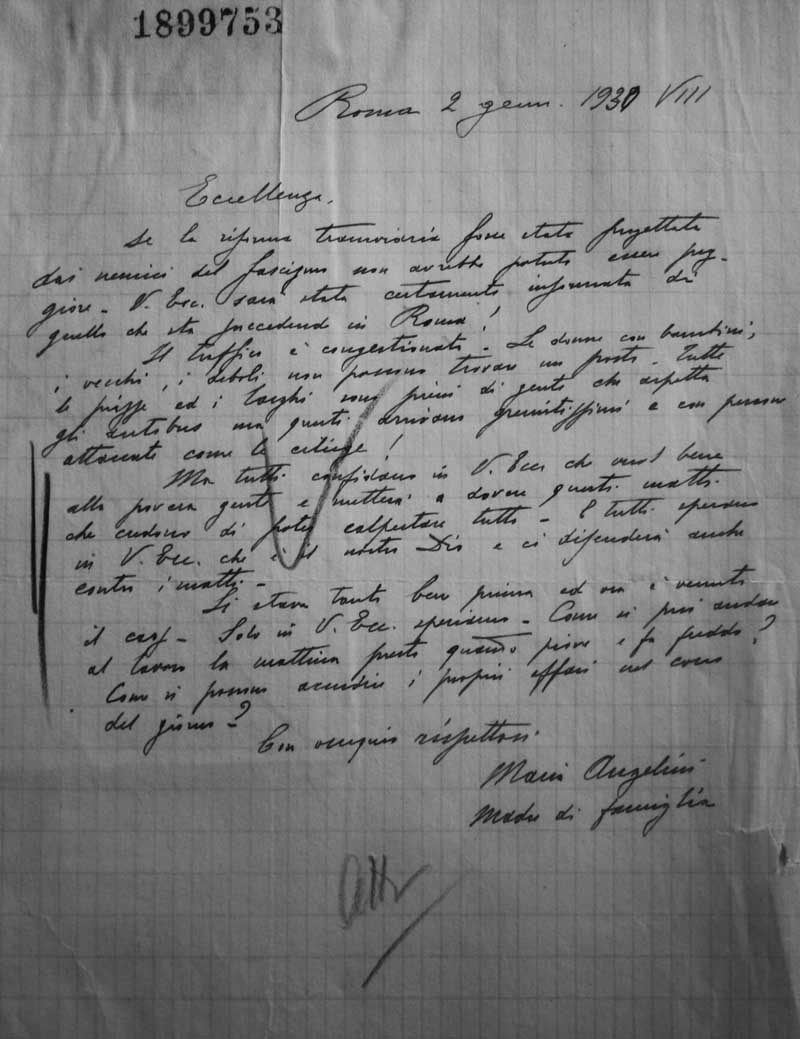 1899753
Roma 2 genn. 1930 VIII
Eccellenza,
Se la riforma tramviaria fosse stata progettata
dai nemici del fascismo non avrebbe potuto essere peg-
giore - V. Ecc. sarà stata certamente informata di
quello che sta succedendo in Roma!
Il traffico è congestionato - Le donne con bambini,
i vecchi, i deboli non possono trovare un posto - Tutte
le piazze ed i larghi sono pieni di gente che aspetta
gli autobus ma questi arrivano gremitissimi e con persone
attaccate come le ciliege!
Ma tutti confidano in V. Ecc. che vuol bene
alla povera gente e metterà a dovere questi matti
che credono di poter calpestare tutto - E tutti sperano
in V. Ecc. che è il nostro Dio e ci difenderà anche
contro i matti -
Si stava tanto bene prima ed ora è venuto
il caos - Solo in V. Ecc. speriamo - Come si può andare
al lavoro la mattina presto quando piove e fa freddo?
Come si possono accudire i propri affari nel corso
del giorno - ?
Con ossequio rispettosi.
Maria Angelini
Madre di famiglia